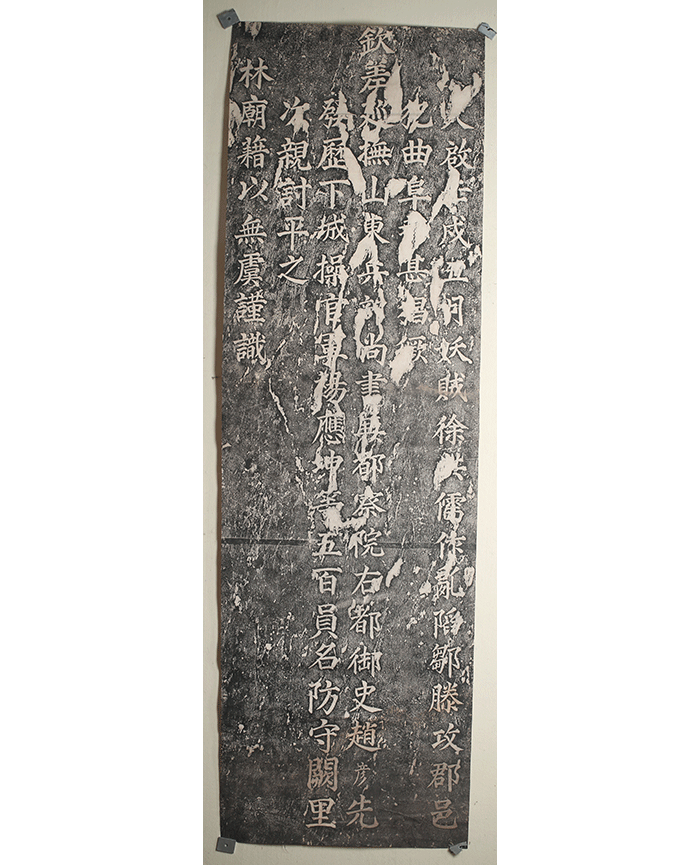 天啟壬戌五月妖賊徐洪儒作亂陷鄒滕攻郡邑
曲阜甚猖獗
欽差巡撫山東兵部尚書兼都察院右都御史趙彥先
發歷下城操官軍楊應坤等五百員名防守闕里
次親討平之
林廟藉以無虞謹識